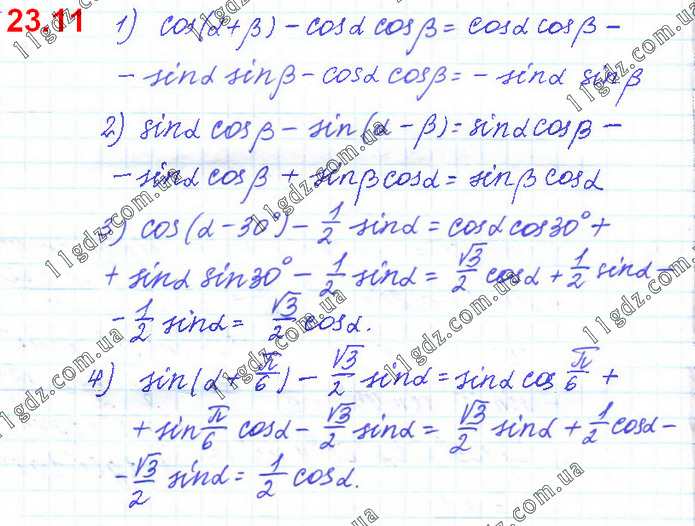 23.11 1) cos(α+β) - cosα cosβ = cosα cosβ -
- sinα sinβ - cosα cosβ = - sinα sinβ
2) sinα cosβ - sin(α - β) = sinα cosβ -
- sinα cosβ + sinβ cosα = sinβ cosα
3) cos(α - 30°) - 1/2 sinα = cosα cos30° +
+ sinα sin30° - 1/2 sinα = √3/2 cosα + 1/2 sinα -
- 1/2 sinα = √3/2 cosα.
4) sin(α + π/6) - √3/2 sinα = sinα cos π/6 +
+ sin π/6 cosα - √3/2 sinα = √3/2 sinα + 1/2 cosα -
- √3/2 sinα = 1/2 cosα.
11gdz.com.ua
11gdz.com.ua
11gdz.com.ua
11gdz.com.ua
11gdz.com.ua
11gdz.com.ua
11gdz.com.ua
11gdz.com.ua